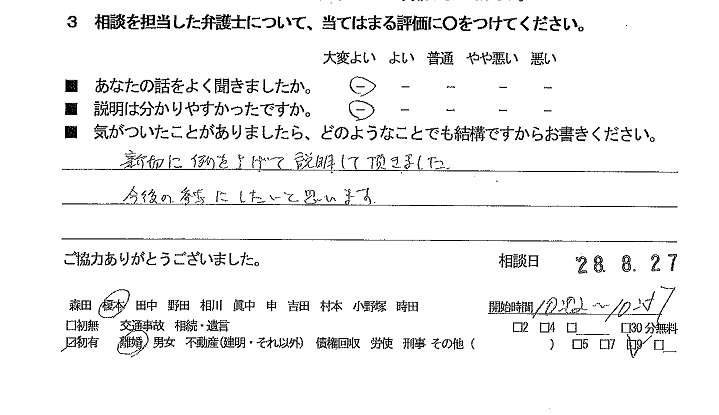 3 相談を担当した弁護士について、当てはまる評価に〇をつけてください。
大変よい よい 普通 やや悪い 悪い
■ あなたの話をよく聞きましたか。 － － － － －
■ 説明は分かりやすかったですか。 － － － － －
■ 気がついたことがありましたら、どのようなことでも結構ですからお書きください。
新切に例を上げて説明して頂きました
今後の参考にしたいと思います
ご協力ありがとうございました。 相談日 '28. 8. 27
森田 榎本 田中 野田 相川 眞中 申 吉田 村本 小野塚 時田 開始時間
□初無 交通事故 相続・遺言 □2 □4 □ □30分無料
☑初有 離婚 男女 不動産(建明・それ以外) 債権回収 労使 刑事 その他 ( ) □5 □7 ☑9 □